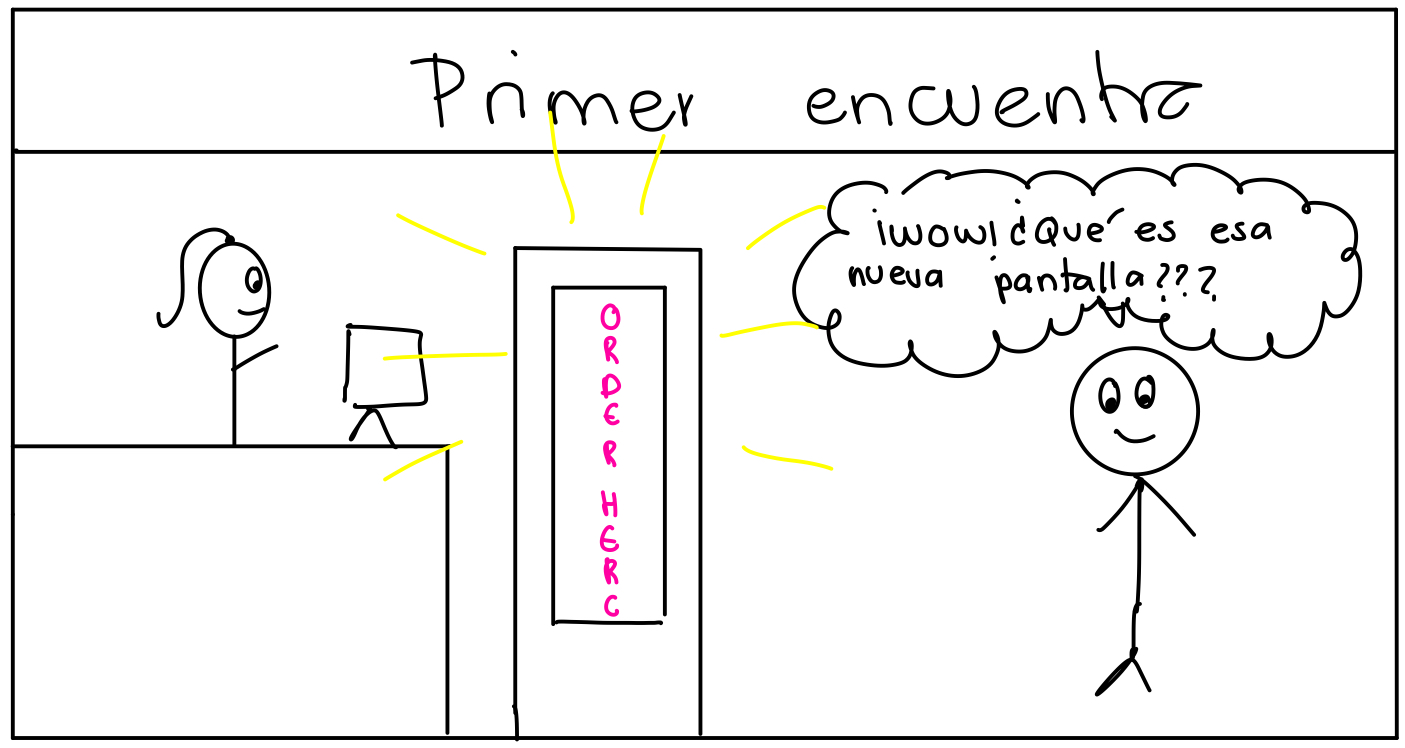 Primer encuentro
¡wow! ¿Qué es esa
nueva pantalla???
ORDER HERE